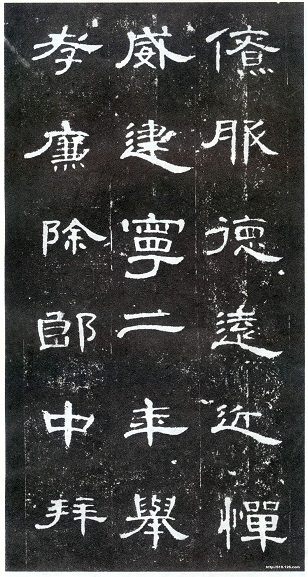 僚服德遠近憚
威建寧二年舉
孝廉除郎中拜